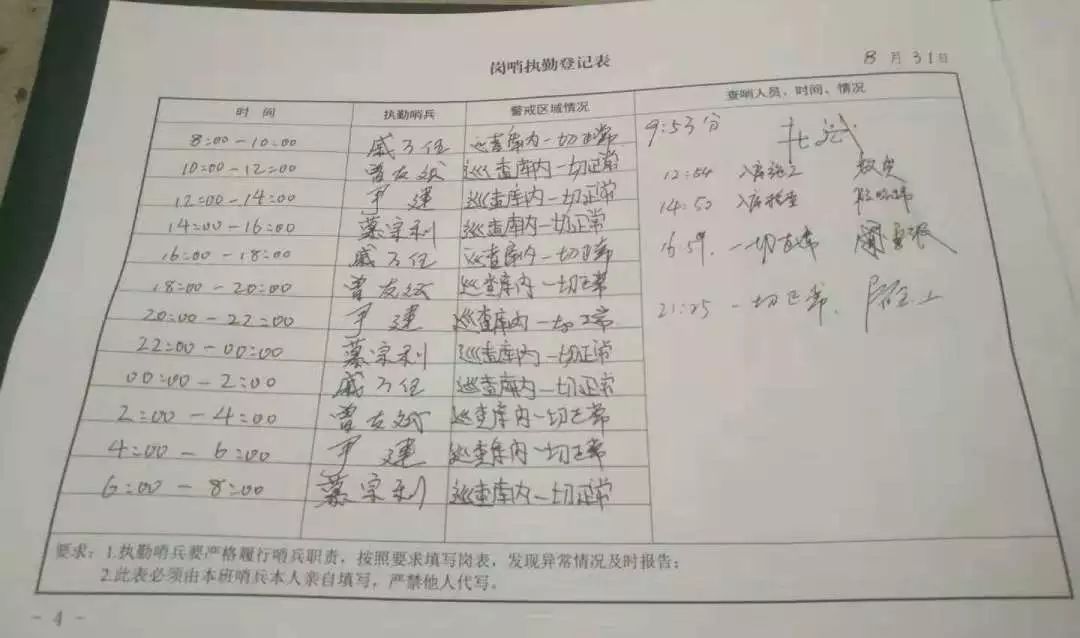 岗哨执勤登记表
8月31日
时间 执勤哨兵 警戒区域情况 查哨人员、时间、情况
8:00-10:00 戚万任 巡查库内一切正常
10:00-12:00 曾友斌 巡查库内一切正常
12:00-14:00 尹建 巡查库内一切正常
14:00-16:00 蒙宗利 巡查库内一切正常
16:00-18:00 戚万任 巡查库内一切正常
18:00-20:00 曾友斌 巡查库内一切正常
20:00-22:00 尹建 巡查库内一切正常
22:00-00:00 蒙宗利 巡查库内一切正常
00:00-2:00 戚万任 巡查库内一切正常
2:00-4:00 曾友斌 巡查库内一切正常
4:00-6:00 尹建 巡查库内一切正常
6:00-8:00 蒙宗利 巡查库内一切正常
9:53分
12:54 入库施工
14:50 入库检查
16:59. 一切正常
21:25 一切正常.
要求：1.执勤哨兵要严格履行哨兵职责，按照要求填写岗表，发现异常情况及时报告；
2.此表必须由本班哨兵本人亲自填写，严禁他人代写。
- 4 -